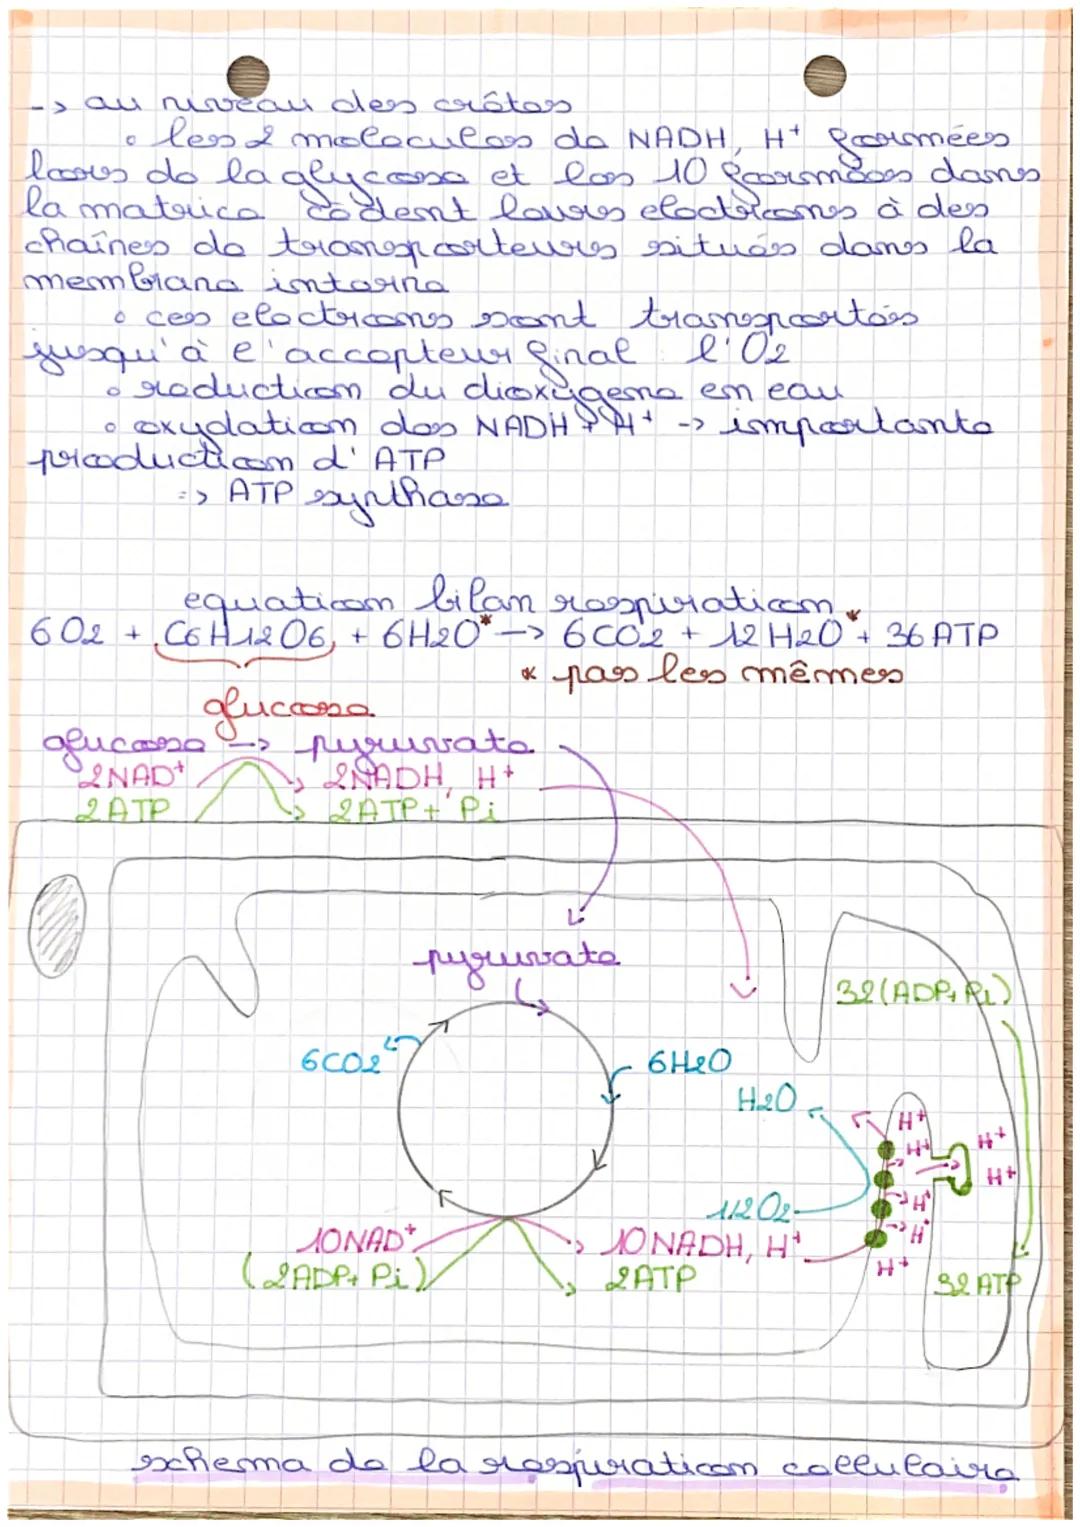 -> au niveau des crêtes
◦ les 2 molecules de NADH, H+ formées
lors de la glycose et les 10 formées dans
la matrice cèdent leurs electrons à des
chaînes de transporteurs situés dans la
membrane interne
◦ ces electrons sont transportés
jusqu'à l'accepteur final : l'O2
◦ reduction du dioxygene en eau
◦ oxydation des NADH + H+ -> importante
production d'ATP
=> ATP synthase
equation bilan respiration
6O2 + C6H12O6 + 6H2O* -> 6CO2 + 12H2O* + 36 ATP
* pas les mêmes
glucose
glucose -> pyruvate
2NAD+ 2NADH, H+
2ATP 2ATP + Pi
pyruvate
32(ADP+Pi)
6CO2 6H2O
H2O
H+
H+ H+
H+
H+
1/2O2 H+
10NAD+ 10NADH, H+
H+
(2ADP+Pi) 2ATP
H+
32 ATP
schema de la respiration cellulaire